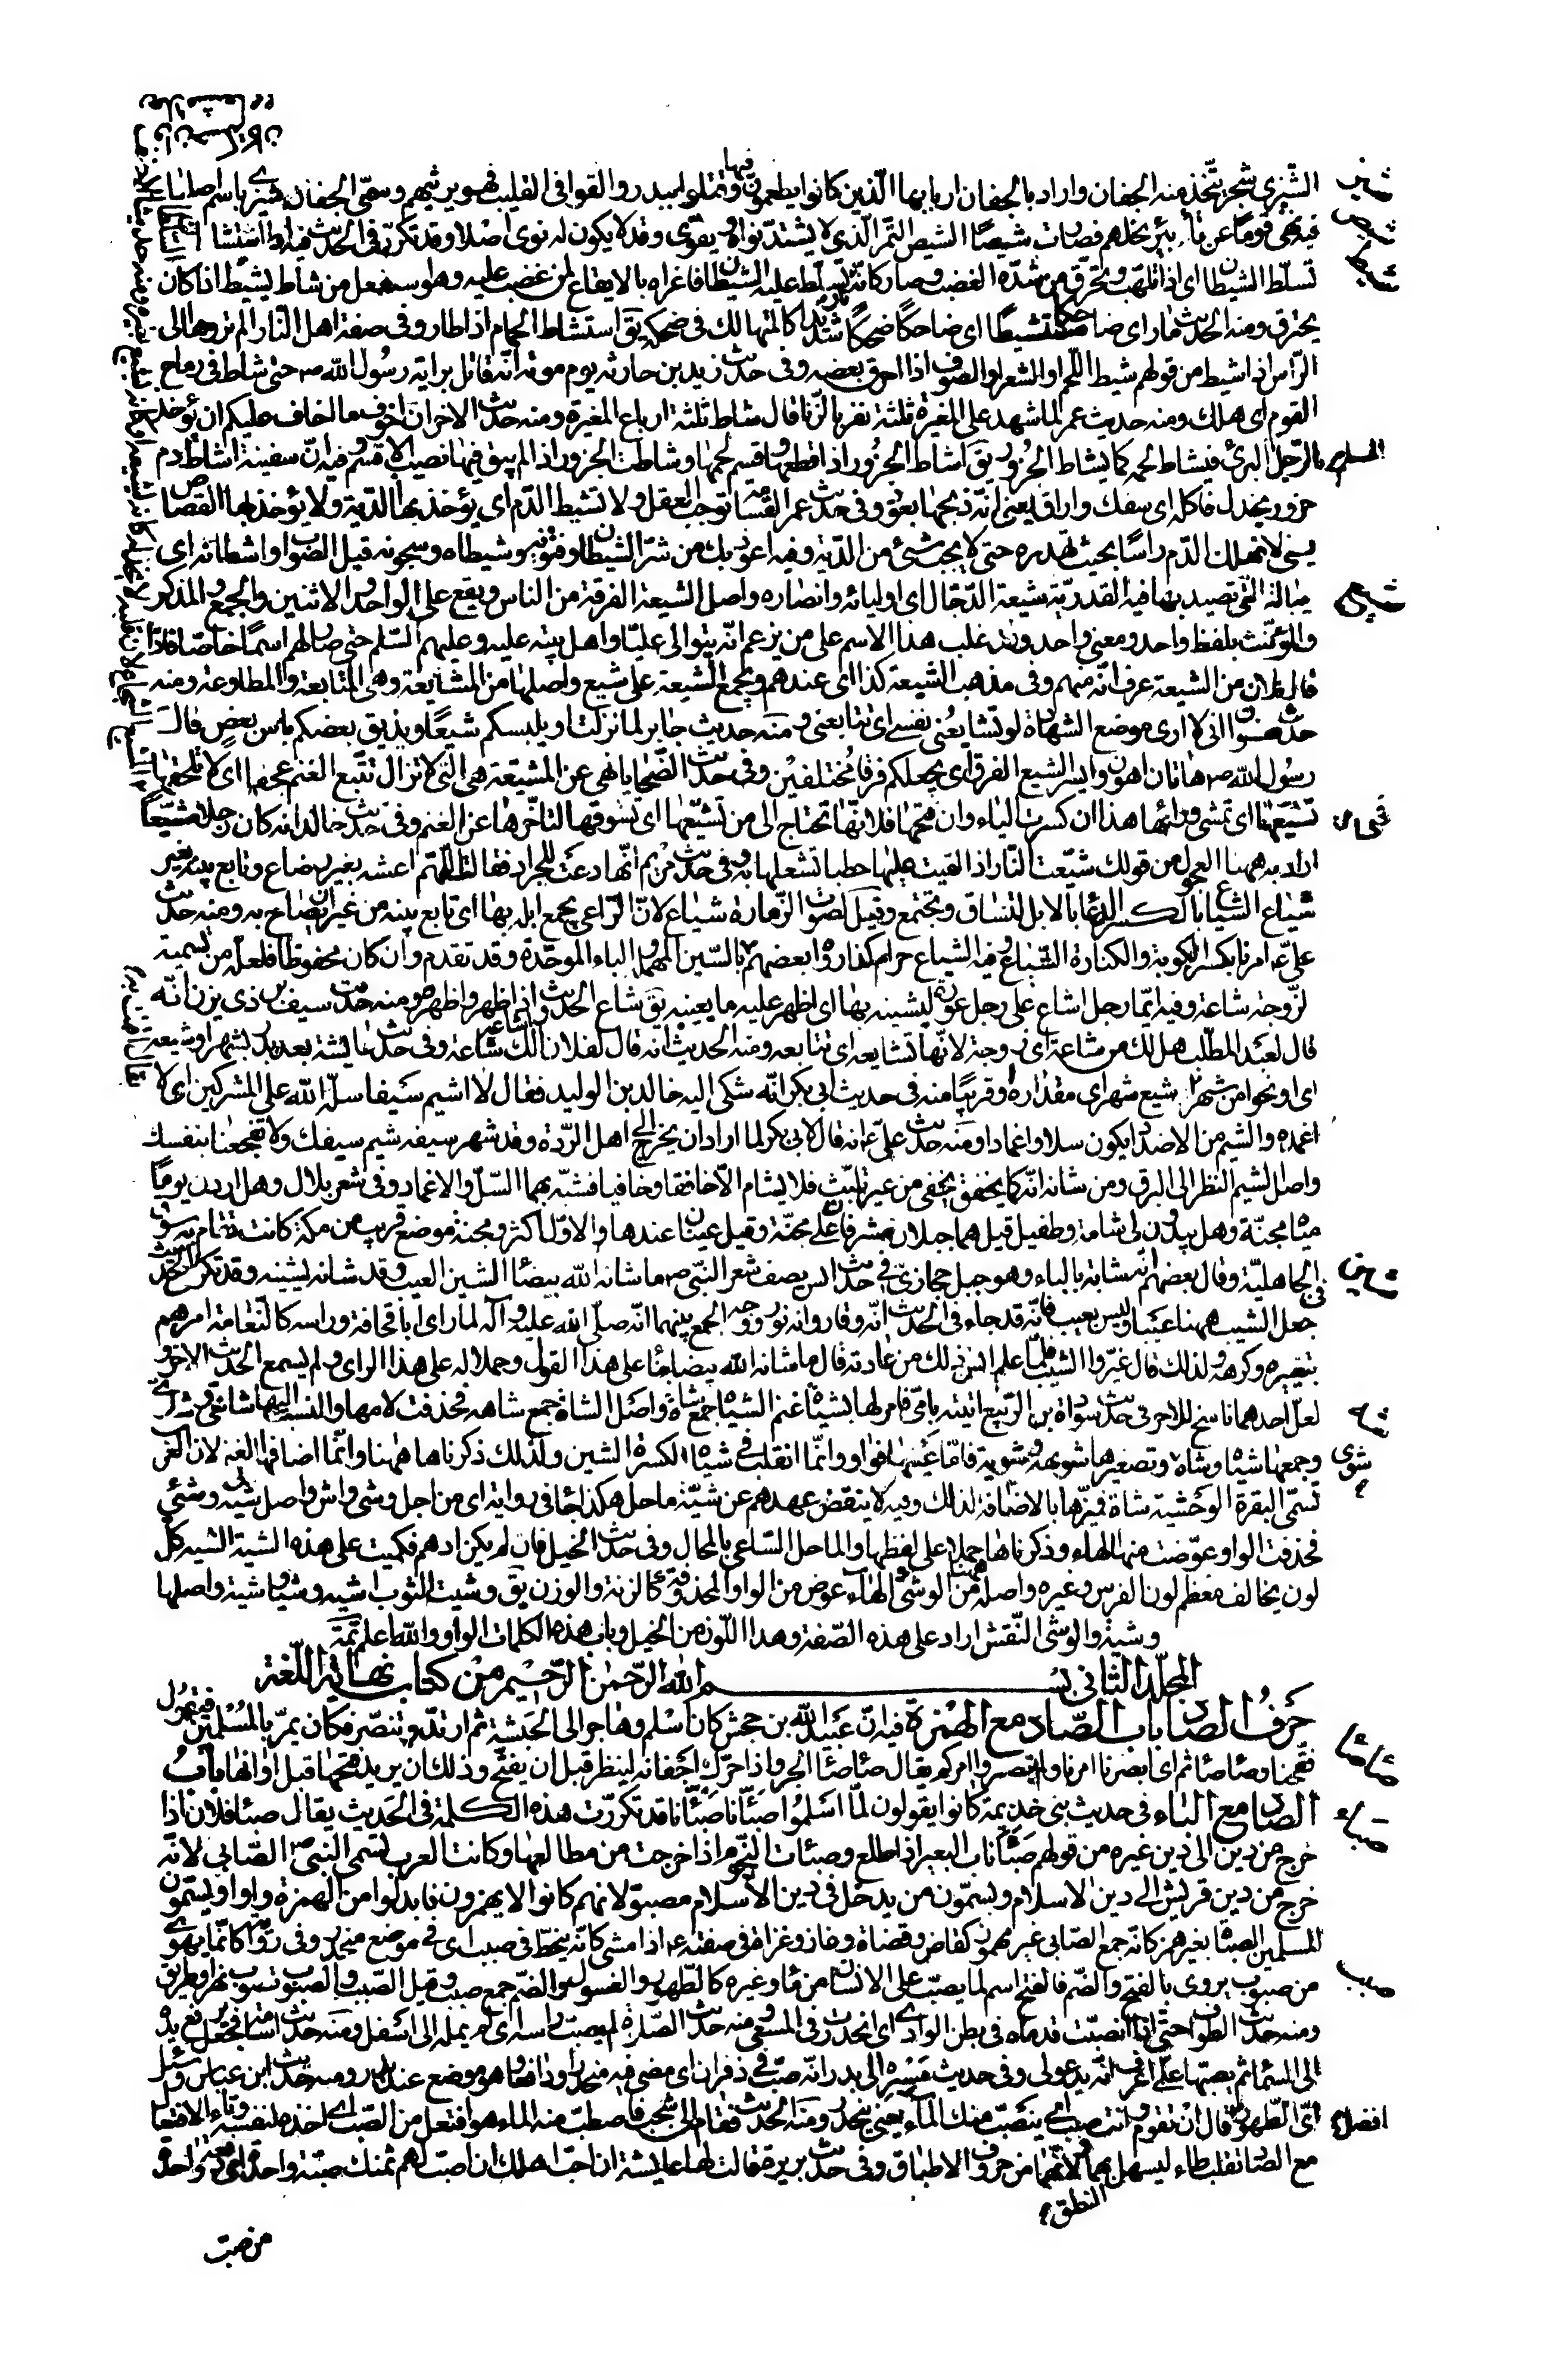 الشيزى شجر يتخذ منه الجفان واراد بالجفان اربابها الذين كانوا يطعمون فيها وقتلوا ببدر والقوا فى القليب فهو يرثيهم وسمى الجفان شيزى باسم اصلها
فيه نهى قوما عن تأبير نخلهم فصارت شيصا الشيص التمر الذى لا يشتد نواه ويقوى وقد لا يكون له نوى اصلا وقد تكرر فى الحديث فيه اذا استشاط
تسلط الشيطان اى اذا تلهب وتحرق من شدة الغضب وصار كانه تسلط عليه الشيطان فاغراه بالايقاع بمن غضب عليه وهو استفعل من شاط يشيط اذا كان
يحترق ومنه الحديث ما رأى ضاحكا مستشيطا اى ضاحكا ضحكا شديدا كالمتهالك فى ضحكه يق استشاط الحمام اذا طار وفى صفة اهل النار الم تروها الى
الراس اذا شيط من قولهم شيط اللحم او الشعر او الصوف اذا احرق بعضه وفى حديث زيد بن حارثه يوم موته انه قاتل براية رسول الله ص حتى شاط فى رماح
القوم اى هلك ومنه حديث عمر لما شهد على المغيرة ثلثة نفر بالزنا قال شاط ثلثة ارباع المغيرة ومنه حديث الاخر ان اخوف ما اخاف عليكم ان يؤخذ
الرجل المسلم البرئ فيشاط لحمه كما يشاط الجزور يق اشاط الجزور اذا قطعها وقسم لحمها وشاطت الجزور اذا لم يبق فيها نصيب الا قسم وفيه ان سفينة اشاط دم
جزور بجذل فاكله اى سفك واراق يعنى انه ذبحها بعود وفى حديث عمر القسامة توجب العقل ولا تشيط الدم اى يؤخذ بها الدية ولا يؤخذ بها القصاص
يعنى لا تهلك الدم راسا بحيث تهدره حتى لا يجب شئ من الدية وفيه اعوذ بك من شر الشيطان وفتونه وشيطاه وسجونه قيل الصواب واشطانه اى
حباله التى تصيد بها فيه القدرية شيعة الدجال اى اوليائه وانصاره واصل الشيعة الفرقة من الناس ويقع على الواحد والاثنين والجمع والمذكر
والمؤنث بلفظ واحد ومعنى واحد وقد غلب هذا الاسم على من يزعم انه يتوالى عليا واهل بيته عليه وعليهم السلم حتى صار لهم اسما خاصا فاذا
قال فلان من الشيعة عرف انه منهم وفى مذهب الشيعة كذا اى عندهم وتجمع الشيعة على شيع واصلها من المشايعة وهى المتابعة والمطاوعة ومنه
حديث صفوان انى لا ارى موضع الشهادة لو تشايعنى نفسى اى تتابعنى ومنه حديث جابر لما نزلت او يلبسكم شيعا ويذيق بعضكم باس بعض قال
رسول الله ص هاتان اهون وايسر الشيع الفرق اى يجعلكم فرقا مختلفين وفى حديث الضحايا نهى عن المشيعة هى التى لا تزال تتبع الغنم عجفا اى لا تلحقها
تشيعها اى تمشى ورائها هذا ان كسرت الياء وان فتحتها فلانها تحتاج الى من تشيعها اى تسوقها لتاخرها عن الغنم وفى حديث خالد انه كان رجلا مشيعا
اراد به ههنا العجول من قولك شيعت النار اذا القيت عليها حطبا تشعلها به وفى حديث مريم انها دعت للجراد فقالت اللهم اعشه بغير رضاع وتابع بينه بغير
شياع الشياع بالكسر الدعا بالابل لتنساق وتجتمع وقيل لصوت الزمارة شياع لان الراعى يجمع ابله بها اى تابع بينه من غير ان يصاح به ومنه حديث
على ع امرنا بكسر الكوبة والكنارة والشياع وفيه الشياع حرام كذا رواه بعضهم بالسين المهملة والباء الموحدة وقد تقدم وان كان محفوظا فلعله من تسمية
الزوجة شاعة وفيه ايما رجل اشاع على رجل عورة ليشينه بها اى اظهر عليه ما يعيبه يق شاع الحديث واشاعه اذا ظهر واظهره ومنه حديث سيف بن ذى يزن انه
قال لعبد المطلب هل لك من شاعة اى زوجة لانها تشايعه اى تتابعه ومنه الحديث انه قال لفلان الك شاعة وفى حديث عايشة بعد بدر بشهر او شيعه
اى او نحوا من شهر يق شيع شهر اى مقداره وقريبا منه فى حديث ابى بكر انه شكى اليه خالد بن الوليد فقال لا اشيم سيفا سله الله على المشركين اى لا
اغمده والشيم من الاضداد يكون سلا واغمادا ومنه حديث على ع انه قال لابى بكر لما اراد ان يخرج الى اهل الردة وقد شهر سيفه شيم سيفك ولا تفجعنا بنفسك
واصل الشيم النظر الى البرق ومن شانه انه كما يخفق يخفى من غير تلبث فلا يشام الا خافقا وخافيا فشبه بهما السل والاغماد وفى شعر بلال وهل اردن يوما
مياه مجنة وهل يبدون لى شامة وطفيل قيل هما جبلان مشرفان على مجنة وقيل عينان عندها والاول اكثر ومجنة موضع قريب من مكة كانت تقام به سوق
فى الجاهلية وقال بعضهم انه شابة بالباء وهو جبل حجازى فى حديث انس يصف شعر النبى ص ما شانه الله ببيضا الشين العيب وقد شانه يشينه وقد تكرر فى الحديث
جعل الشيب ههنا عيبا وليس بعيب فانه قد جاء فى الحديث انه وقار وانه نور ووجه الجمع بينهما انه صلى الله عليه وآله لما راى ابا قحافة وراسه كالثغامة امرهم
بتغييره وكرهه ولذلك قال غيروا الشيب فلما علم انس ذلك من عادته قال ما شانه الله ببيضا بناء على هذا القول وحملا له على هذا الراى ولم يسمع الحديث الاخر و
لعل احدهما ناسخ للاخر فى حديث سوادة بن الربيع اتيته بامى فامر لها بشياه غنم الشياه جمع شاة واصل الشاة جمع شاهه فحذفت لامها والنسب اليها شاهى وشاوى
وجمعها شياه وشاء وتصغيرها شويهة وشوية فاما عينها فواو وانما انقلبت فى شياه لكسرة الشين ولذلك ذكرناها ههنا وانما اضافها الى الغنم لان العرب
تسمى البقرة الوحشية شاة فميزها بالاضافة لذلك وفيه لا ينقض عهدهم عن شية ماحل هكذا جا فى رواية اى من اجل وشى واش واصل شية وشى
فحذفت الواو وعوضت منها الهاء وذكرناها ههنا حملا على لفظها والماحل الساعى بالمحال وفى حديث الخيل فان لم يكن ادهم فكميت على هذه الشية الشية كل
لون يخالف معظم لون الفرس وغيره واصله من الوشى والهاء عوض من الواو المحذوفة كالزنة والوزن يق وشيت الثوب اشيه وشيا وشية واصلها
وشية والوشى النقش اراد على هذه الصفة وهذا اللون من الخيل وباب هذه الكلمات الواو والله اعلم تمت
المجلد الثانى بسم الله الرحمن الرحيم من كتاب نهاية اللغة
حرف الصاد باب الصاد مع الهمزة فيه ان عبيد الله بن جحش كان اسلم وهاجر الى الحبشة ثم ارتد وتنصر فكان يمر بالمسلمين فيقول
فقحنا وصاصاتم اى ابصرنا امرنا ولم تبصروا امركم يقال صاصا الجرو اذا حرك اجفانه لينظر قبل ان يفتح وذلك ان يريد فتحها قبل اوانها باب
الصاد مع الباء فى حديث بنى خذيمة كانوا يقولون لما اسلموا صبأنا صبأنا قد تكررت هذه الكلمة فى الحديث يقال صبا فلان اذا
خرج من دين الى دين غيره من قولهم صبأ ناب البعير اذا طلع وصبات النجوم اذا خرجت من مطالعها وكانت العرب تسمى النبى ص الصابى لانه
خرج من دين قريش الى دين الاسلام ويسمون من يدخل فى دين الاسلام مصبوا لانهم كانوا لا يهمزون فابدلوا من الهمزة واوا ويسمون
المسلمين الصباة بغير همز كانه جمع الصابى غير مهموز كقاض وقضاة وغاز وغزاة فى صفته ع اذا مشى كانه ينحط فى صبب اى فى موضع منحدر وفى رواية كانما يهوى
من صبوب يروى بالفتح والضم فالفتح اسم لما يصب على الانسان من ماء وغيره كالطهور والغسول والضم جمع صبب وقيل الصبب والصبوب تصوب نهر او طريق
ومنه حديث الطواف حتى اذا انصبت قدماه فى بطن الوادى اى انحدرت فى المسعى ومنه حديث الصلوة لم يصب راسه اى لم يمله الى اسفل ومنه حديث اسامة فجعل يرفع يده
الى السماء ثم يصبها على اعرف انه يدعو لى وفى حديث مسيره الى بدر انه صب فى ذفران اى مضى فيه منحدرا ودافعا وهو موضع عند بدر ومنه حديث ابن عباس وسئل
اى الطهور افضل قال ان تقوم وانت صبب اى ينصب منك الماء يعنى يتحدر ومنه الحديث فقام الى شجب فاصطب منه الماء هو افتعل من الصب اى اخذه لنفسه وتاء الافتعال
مع الصاد تقلب طاء ليسهل النطق بهما لانهما من حروف الاطباق وفى حديث بريرة قالت لها عايشة ان احب اهلك ان اصب لهم ثمنك صبة واحدة اى دفعة واحدة
من صب